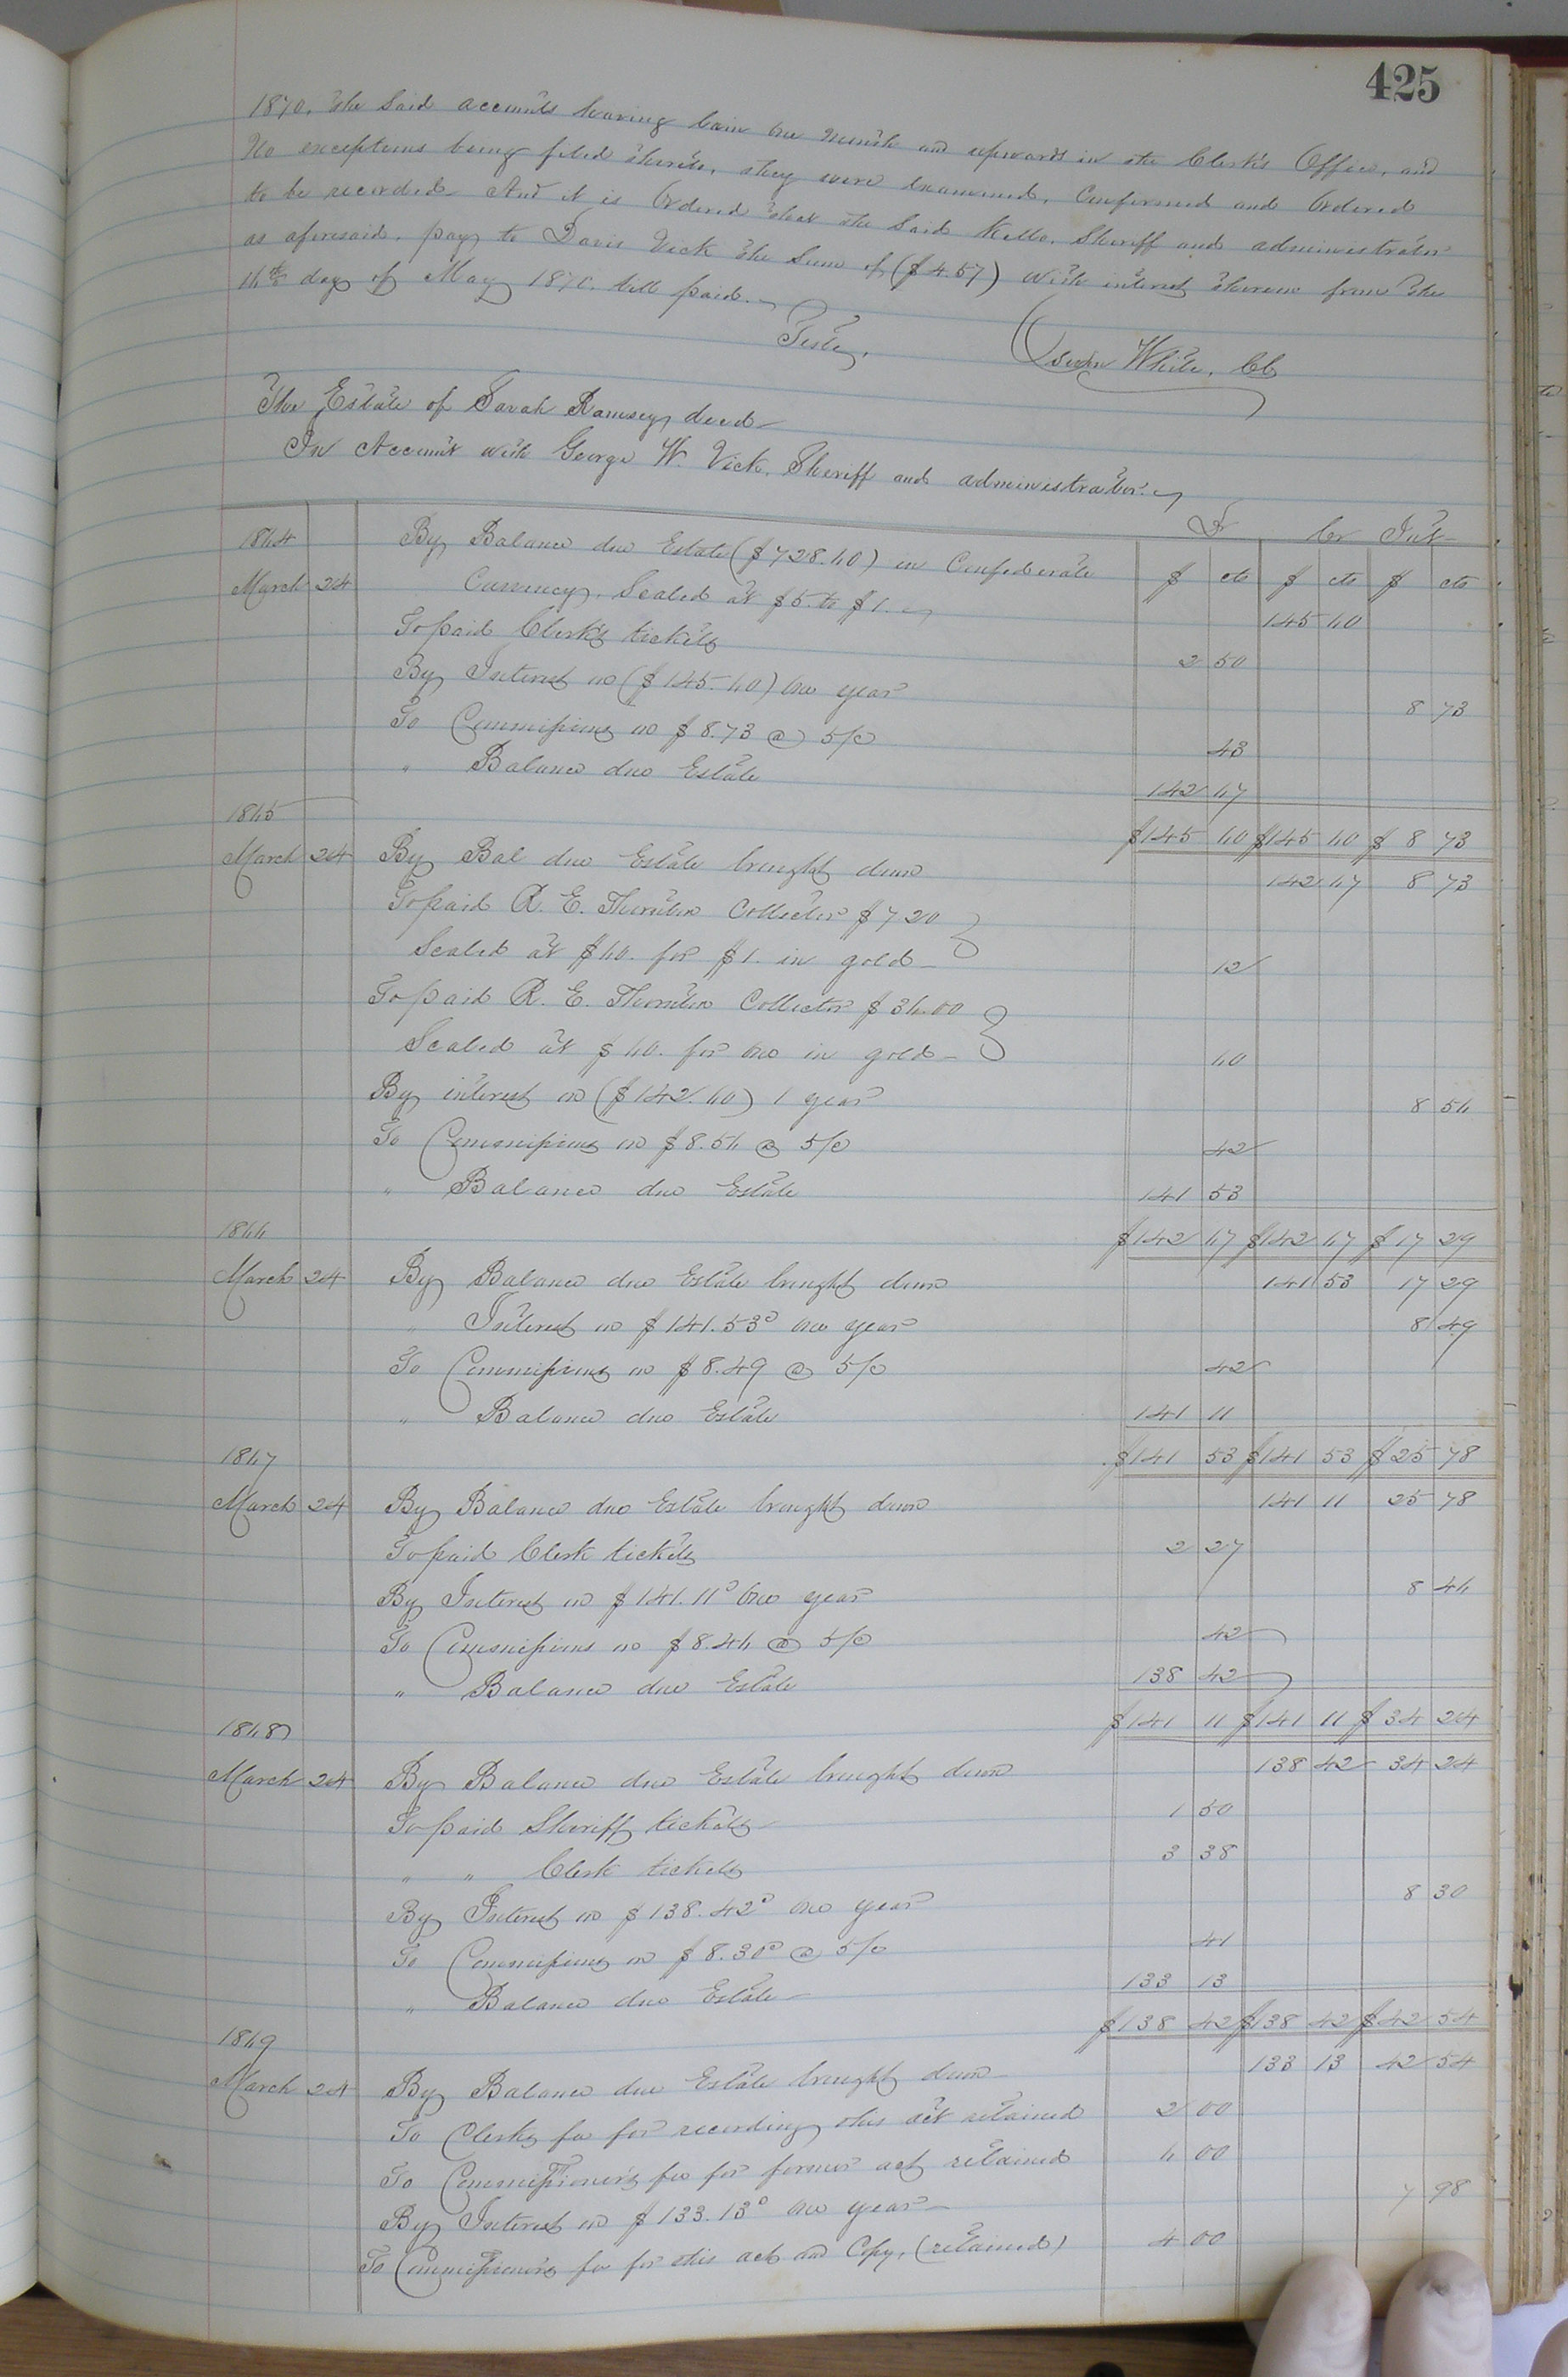 425
1870. The Said accounts having lain one month and upwards in the Clerk's Office, and
No exceptions being filed thereto, they were examined, Confirmed and Ordered
to be recorded- And it is Ordered that the Said Kello, Sheriff and administrator
as aforesaid, pay to Davis Vick the Sum of ($4.57) with interest thereon from the
16th day of May 1870. till paid.
Teste,
White, CC
The Estate of Sarah Ramsey, decd-
In Account with George W. Vick, Sheriff and administrator.
Dr Cr Int-
$ cts $ cts $ cts
1864
March 24 By Balance due Estate ($728.60) in Confederate
Currency, Scaled at $5. to $1. 145 60
To paid Clerk's tickets 2 50
By Interest on ($145.60) one year 8 73
To Commissions on $8.73 @ 5/c 43
" Balance due Estate 142 67
$145 60 $145 60 $8 73
1865
March 24 By Bal due Estate brought down 142 67 8 73
To paid R. E. Thornton Collector $7 20
Scaled at $60. for $1. in gold- 12
To paid R. E. Thornton Collector $36.00
Scaled at $60. for one in gold- 60
By interest on ($142.60) 1 year 8 56
To Commissions on $8.56 @ 5/c 42
" Balance due Estate 141 53
$142 67 $142 67 $17 29
1866
March 24 By Balance due Estate brought down 141 53 17 29
" Interest on $141.53c one year 8 49
To Commissions on $8.49 @ 5/c 42
" Balance due Estate 141 11
$141 53 $141 53 $25 78
1867
March 24 By Balance due Estate brought down 141 11 25 78
To paid Clerk tickets 2 27
By Interest on $141.11c One year 8 46
To Commissions on $8.46 @ 5/c 42
" Balance due Estate 138 42
$141 11 $141 11 $34 24
1868
March 24 By Balance due Estate brought down 138 42 34 24
To paid Sheriff tickets 1 50
" " Clerk tickets 3 38
By Interest on $138.42c one year 8 30
To Commissions on $8.30c @ 5/c 41
" Balance due Estate- 133 13
$138 42 $138 42 $42 54
1869
March 24 By Balance due Estate brought down 133 13 42 54
To Clerks fee for recording this act retained 2 00
To Commissioner's fee for former act retained 6 00
By Interest on $133.13c one year- 7 98
To Commissioners fee for this act and Copy, (retained) 4 00